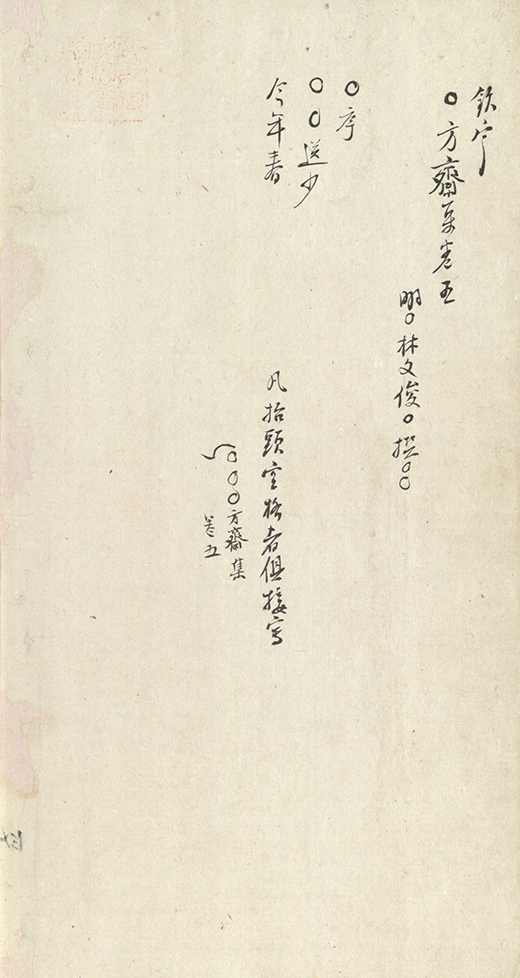 欽定
〇方齋集卷五
明〇林文俊〇撰〇〇
〇序
〇〇送少
今年春
凡抬頭空格者俱接寫
〇〇〇方齋集
卷五